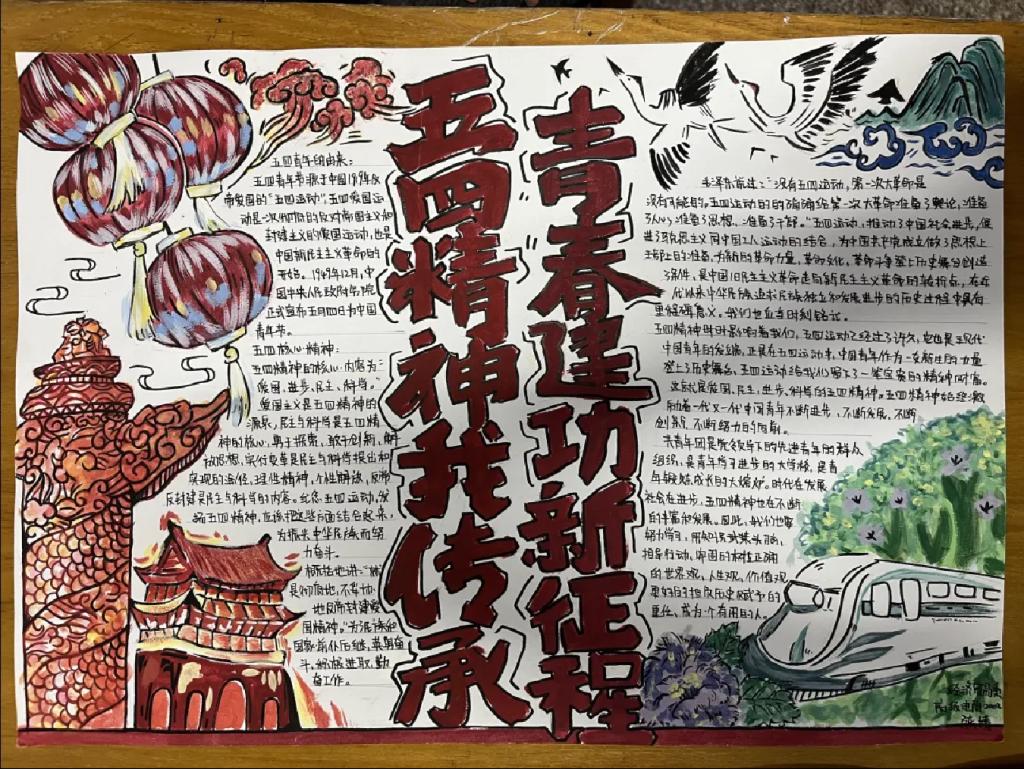 五四精神我传承
青春建功新征程
五四青年的由来：
五四青年节源于中国1919年反
帝爱国的“五四运动”，五四爱国运
动是一次彻底的反对帝国主义和
封建主义的爱国运动，也是
中国新民主主义革命的
开始。1949年12月，中
国中央人民政府政务院
正式宣布五月四日为中国
青年节。
五四核心精神：
五四精神的核心内容为：“
爱国，进步，民主，科学。”
爱国主义是五四精神的
源泉，民主与科学是五四精
神的核心，勇于探索，敢于创新，解
放思想，实行变革是民主与科学提出和
实现的途径，理性精神，个性解放，反帝
反封建是民主与科学的内容。纪念五四运动，发
扬五四精神，应该把这些方面结合起来，
为振兴中华民族而努
力奋斗。
是彻底地，不妥协
地反帝封建爱
国精神。”为民族和
国家前仆后继，英勇奋
斗。积极进取，勤
奋工作。
没有五四运动，第一次大革命是
没有可能的。五四运动的的确确给第一次大革命准备了舆论，准备
了人心，准备了思想，准备了干部。”五四运动，推动了中国社会进步，促
进了马克思主义同中国工人运动的结合，为中国共产党成立做了思想上
干部上的准备，为新的革命力量，革命文化，革命斗争登上历史舞台创造
了条件，是中国旧民主主义革命走向新民主主义革命的转折点，在近
代以来中华民族追求民族独立和发展进步的历史进程中具有
里程碑意义。我们也应当时刻铭记。
五四精神时时影响着我们，五四运动已经过了许久，它也是近现代
中国青年的发端，正是在五四运动中，中国青年作为一支新生的力量
登上了历史舞台，五四运动给我们留下了一笔宝贵的精神财富。
这就是爱国，民主，进步，科学的五四精神。五四精神始终激
励着一代又一代中国青年不断进步，不断发展，不断
创新，不断努力的向前。
共青团是党领导下的先进青年的群众
组织，是青年学习进步的大学校，是青
年锻炼成长的大熔炉。时代在发展
社会在进步，五四精神也在不断
的丰富和发展。因此，我们也要
努力学习，用知识武装头脑，
指导行动，牢固的树立正确
的世界观，人生观，价值观，
更好的担负历史赋予的
重任，成为一个有用的人。